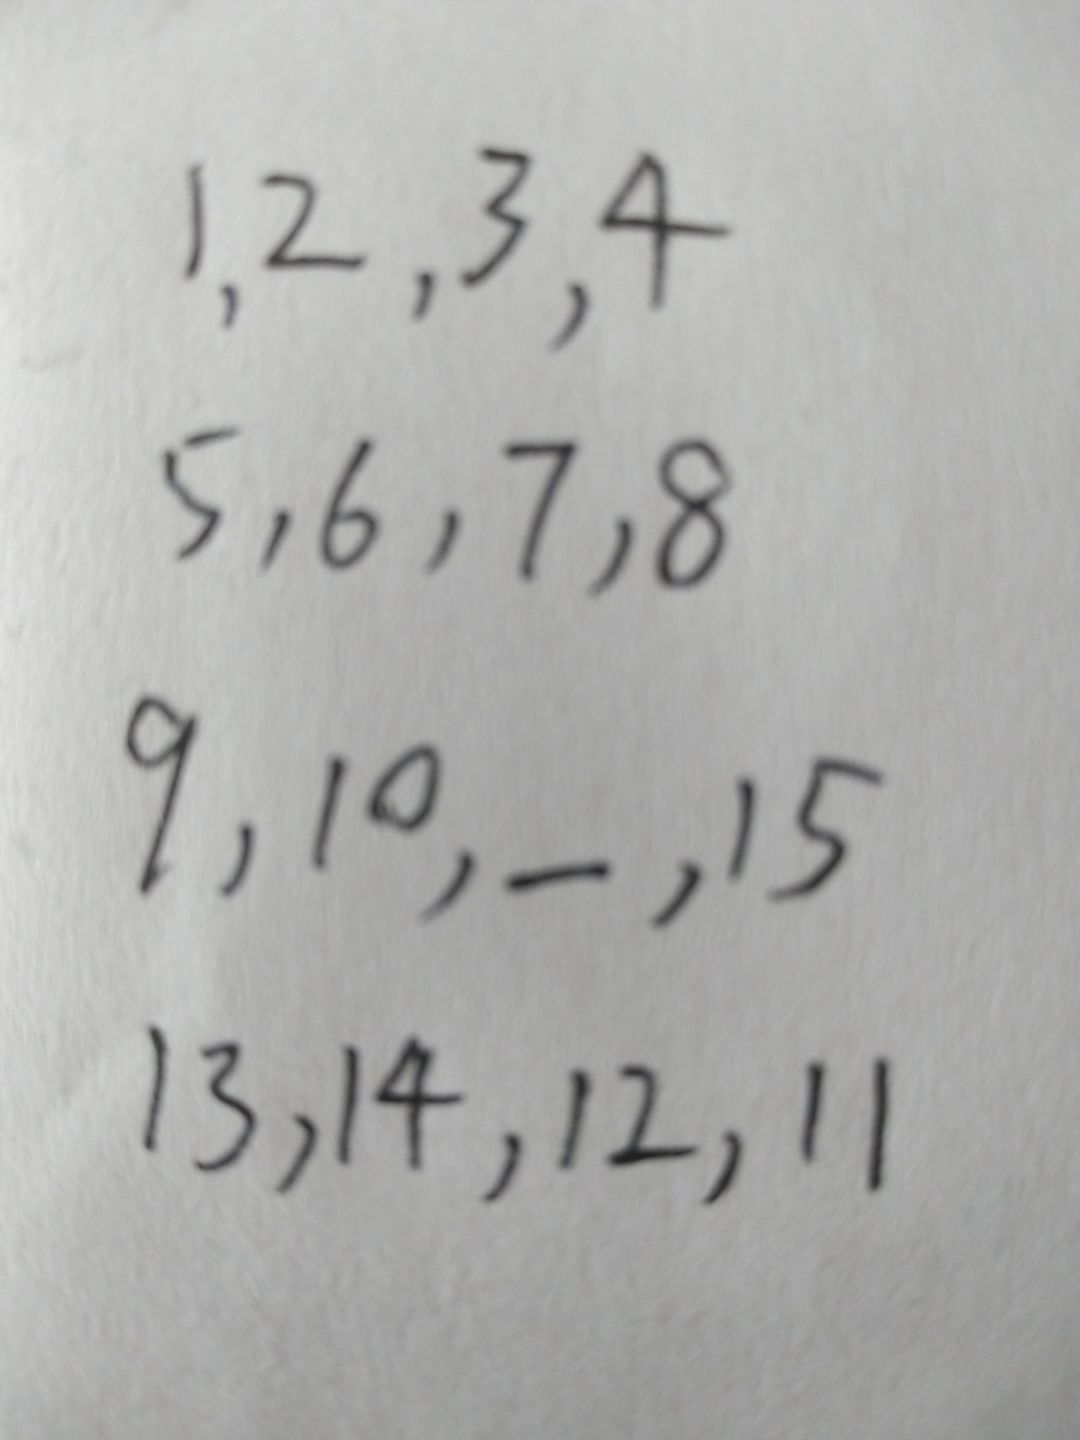 1,2,3,4
5,6,7,8
9,10,_,15
13,14,12,11